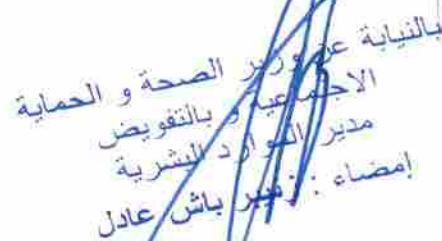 بالنيابة عن وزير الصحة و الحماية
الاجتماعية و بالتفويض
مدير الموارد البشرية
إمضاء : زنيبر باش عادل